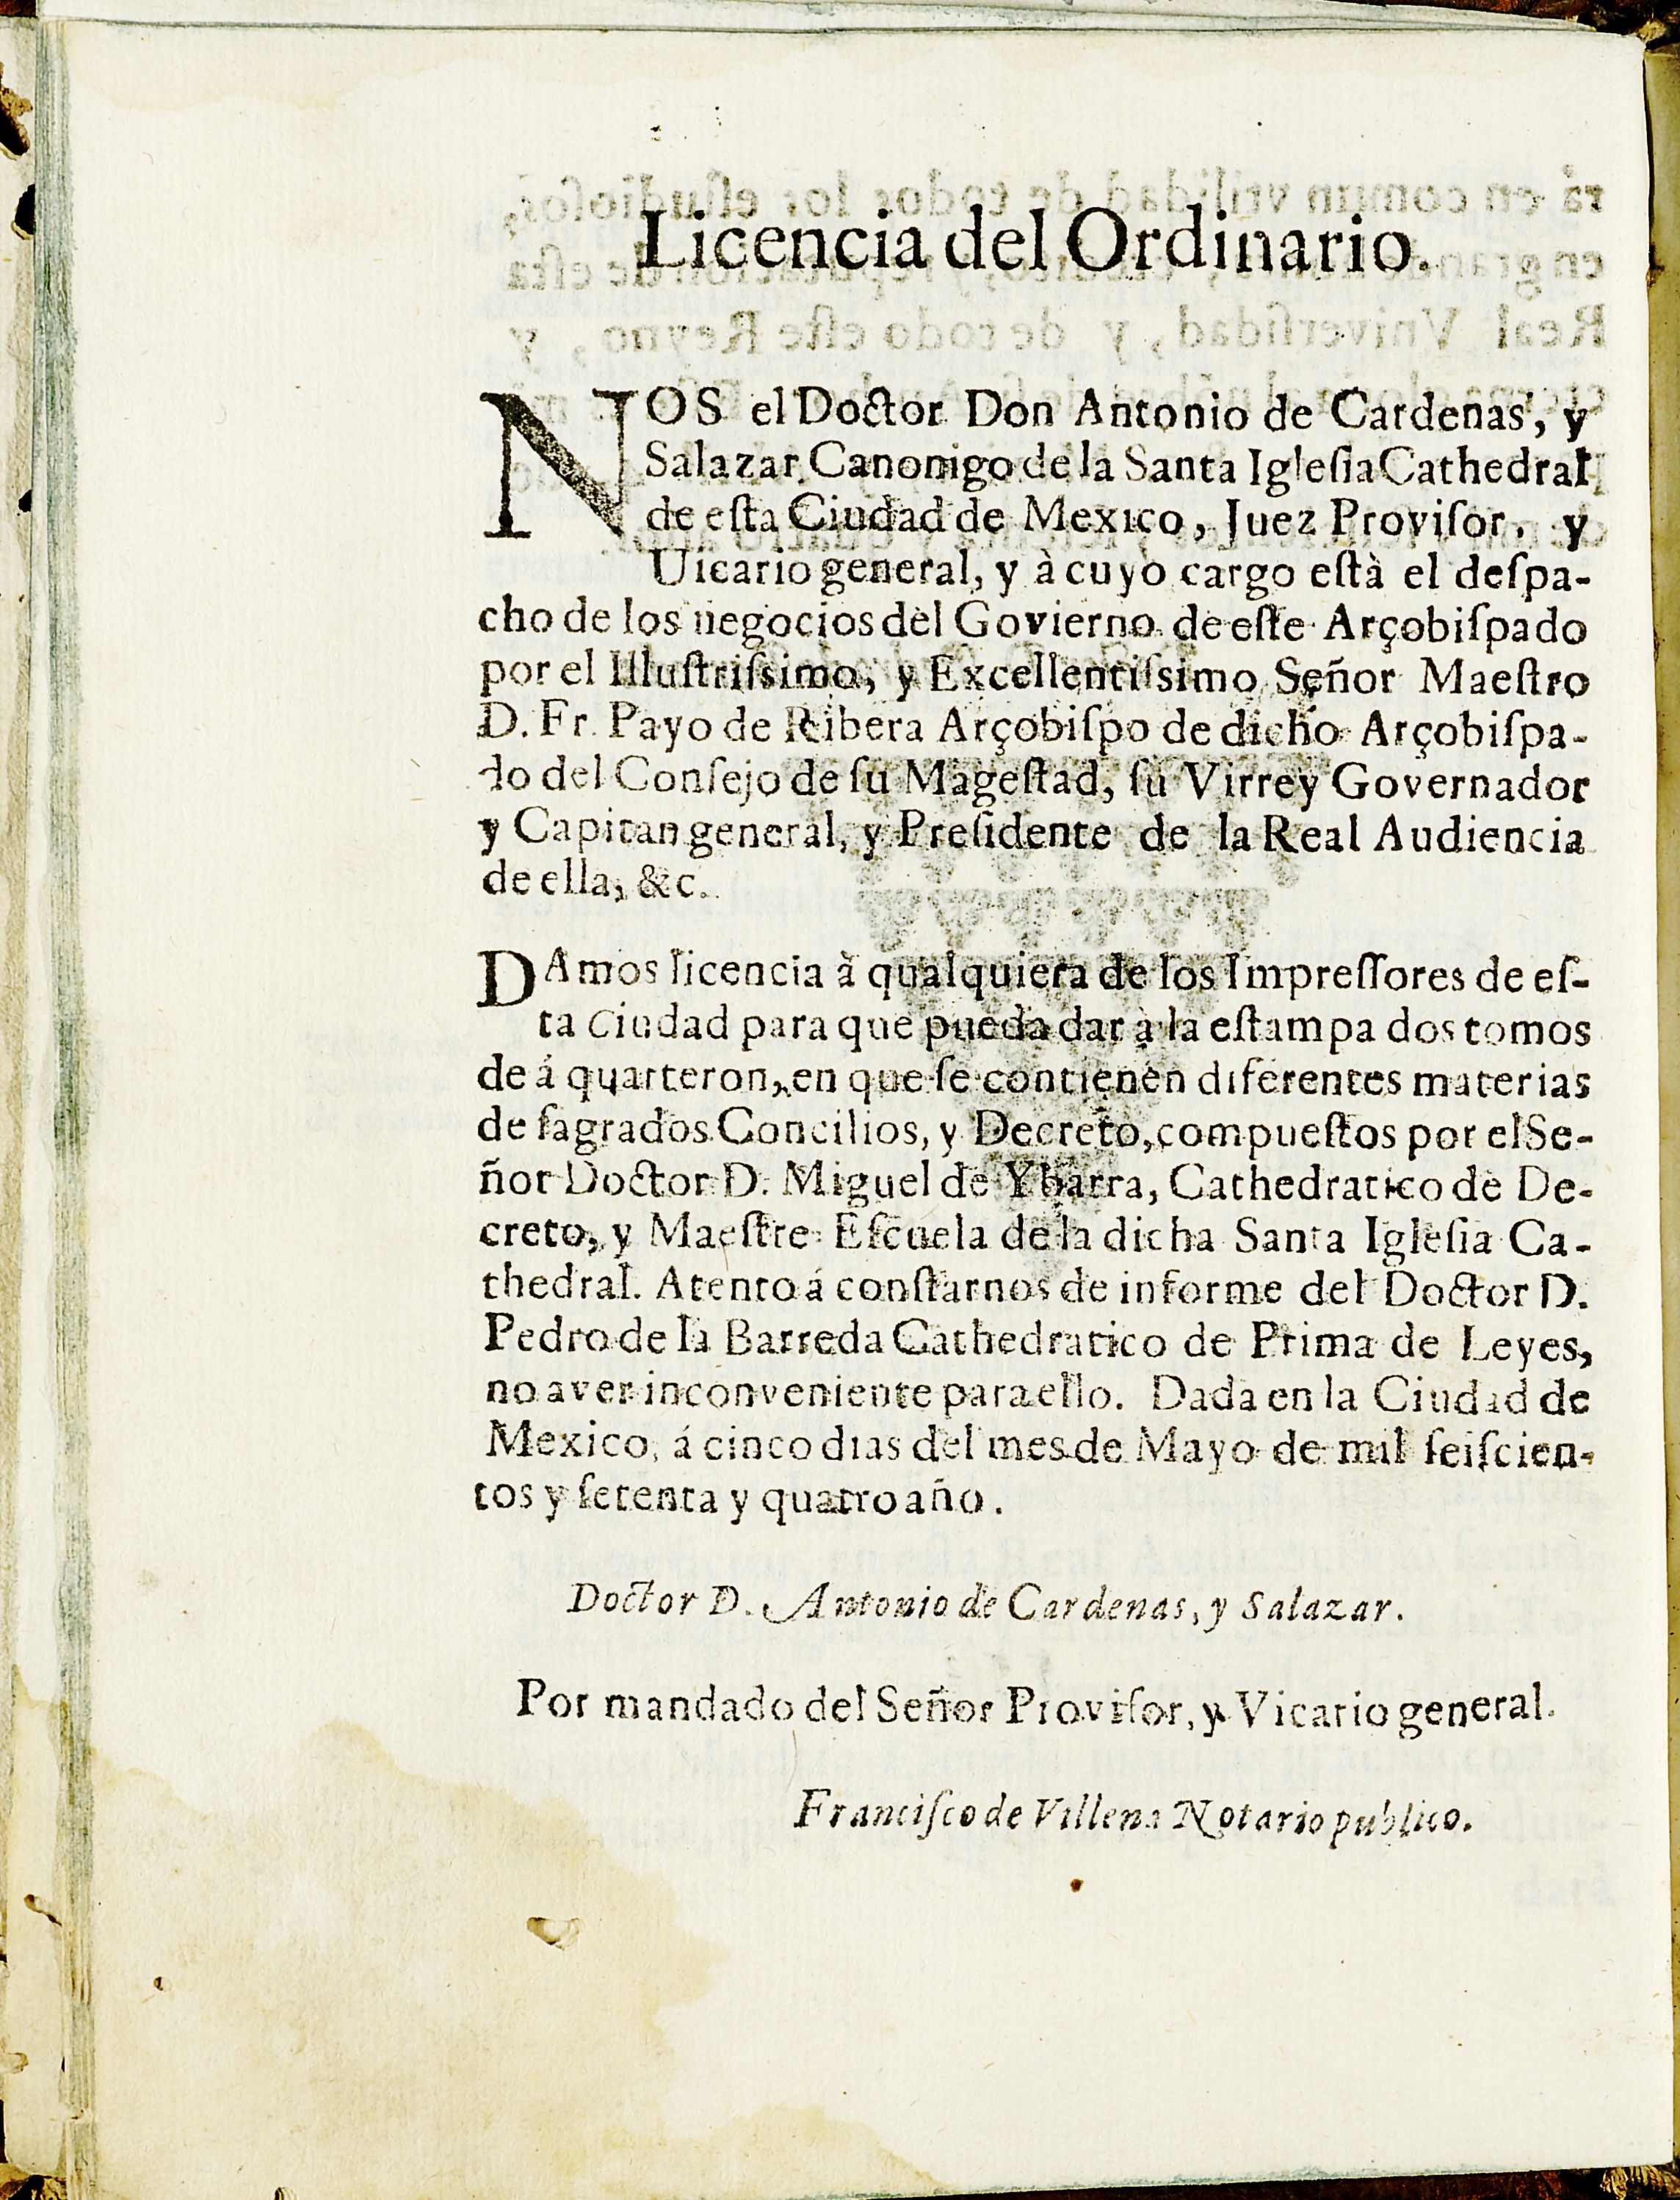 Licencia del Ordinario.
NOS el Doctor Don Antonio de Cardenas, y
Salazar Canonigo de la Santa Iglesia Cathedral
de esta Ciudad de Mexico, Juez Provisor, y
Uicario general, y à cuyo cargo està el despa-
cho de los negocios del Govierno de este Arçobispado
por el Illustrissimo, y Excellentissimo Señor Maestro
D. Fr. Payo de Ribera Arçobispo de dicho Arçobispa-
do del Consejo de su Magestad, su Virrey Governador
y Capitan general, y Presidente de la Real Audiencia
de ella, &c.
DAmos licencia à qualquiera de los Impressores de es-
ta Ciudad para que pueda dar à la estampa dos tomos
de á quarteron, en que se contienen diferentes materias
de sagrados Concilios, y Decreto, compuestos por el Se-
ñor Doctor D. Miguel de Ybarra, Cathedratico de De-
creto, y Maestre Escuela de la dicha Santa Iglesia Ca-
thedral. Atento á constarnos de informe del Doctor D.
Pedro de la Barreda Cathedratico de Prima de Leyes,
no aver inconveniente para ello. Dada en la Ciudad de
Mexico, á cinco dias del mes de Mayo de mil seiscien-
tos y setenta y quatro año.
Doctor D. Antonio de Cardenas, y Salazar.
Por mandado del Señor Provisor, y Vicario general.
Francisco de Villena Notario publico.